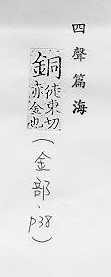 四聲篇海
銅徒東切
亦金也
(金部·p38)